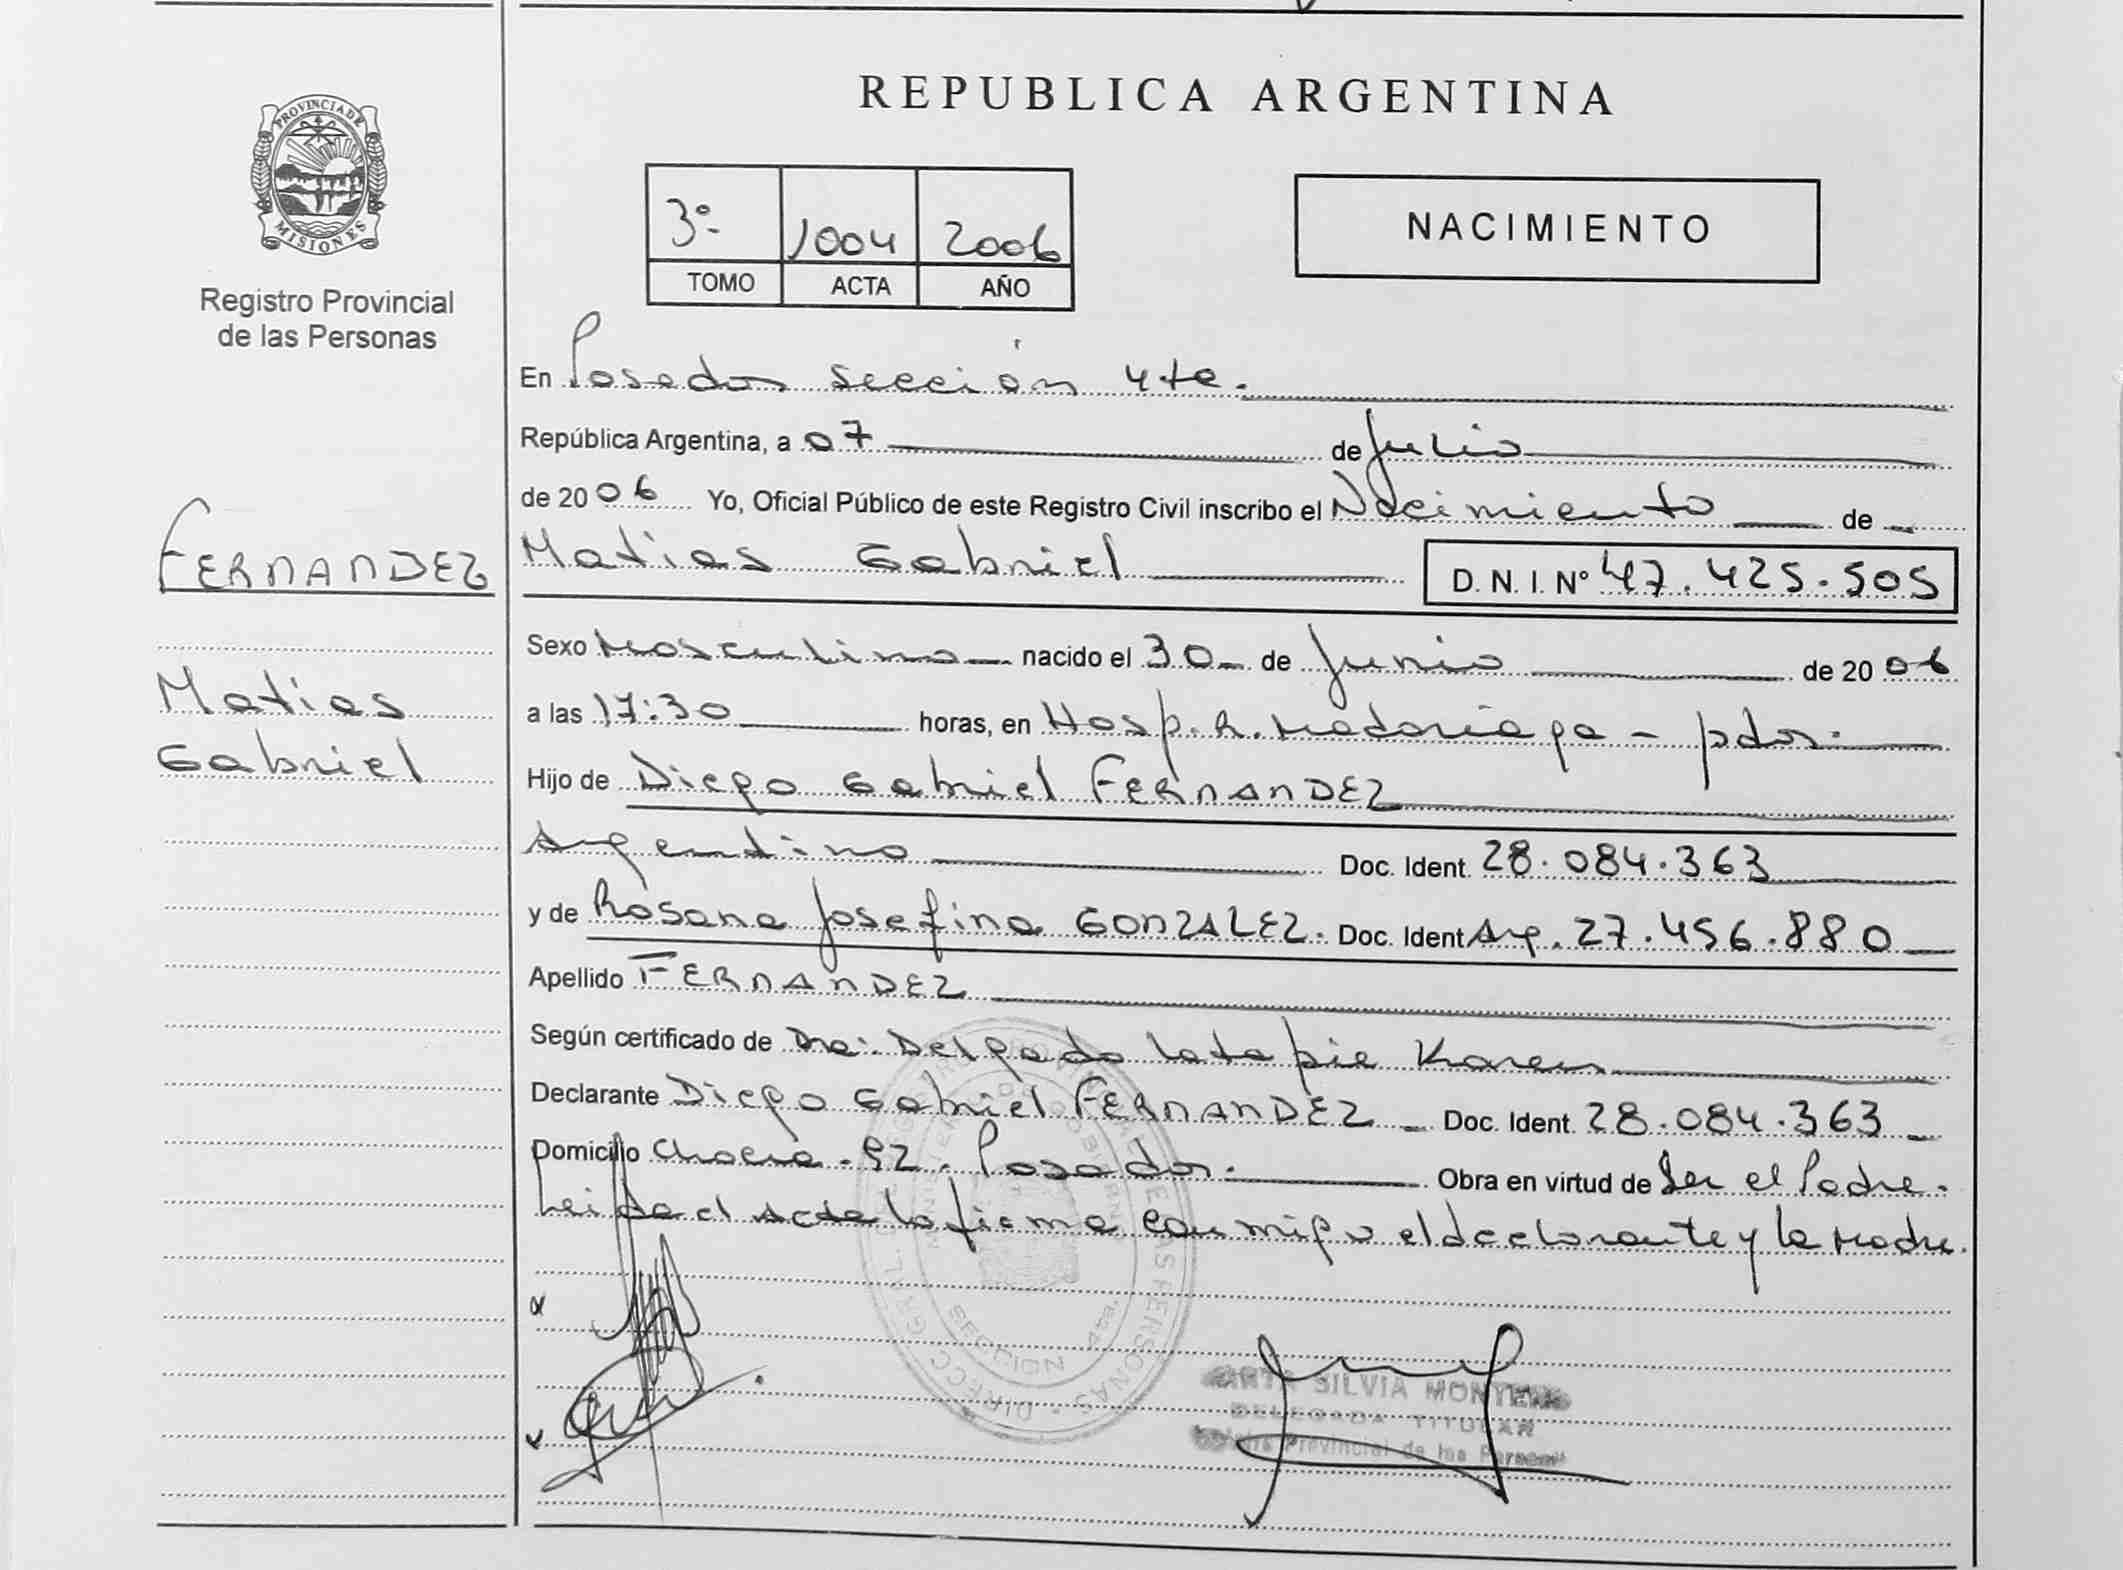 PROVINCIA DE
MISIONES
Registro Provincial
de las Personas
FERNANDEZ
Matias
Gabriel
REPUBLICA ARGENTINA
3º 1004 2006
TOMO ACTA AÑO
NACIMIENTO
En Posadas sección 4ta.
República Argentina, a 07 de Julio
de 2006 Yo, Oficial Público de este Registro Civil inscribo el Nacimiento de
Matias Gabriel D. N. I. Nº 47.425.505
Sexo Masculino nacido el 30 de Junio de 2006
a las 17:30 horas, en Hosp. R. Madariaga - pdas.
Hijo de Diego Gabriel FERNANDEZ
Argentino Doc. Ident. 28.084.363
y de Rosana Josefina GONZALEZ. Doc. Ident Arg. 27.456.880
Apellido FERNANDEZ
Según certificado de Dra. Delgado Latapie Karen
Declarante Diego Gabriel FERNANDEZ Doc. Ident. 28.084.363
Domicilio Chacra - 92. Posadas. Obra en virtud de Ser el Padre.
Leida el Acta la firma conmigo el declarante y la Madre.
SILVIA
DELEGADA TITULAR
Provincial de las
SECCION